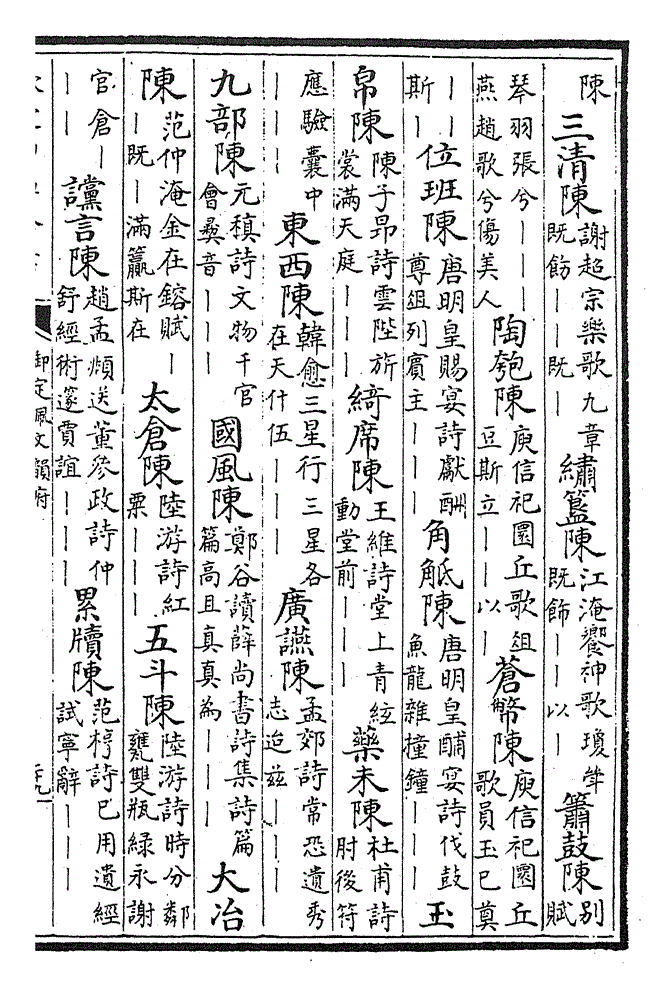 陳 三清陳 謝超宗樂歌九章既飭——既— 繡簋陳 江淹饗神歌瓊斝既飾——以— 簫鼓陳 別賦
琴羽張兮———燕趙歌兮傷美人 陶匏陳 庾信祀圜丘歌俎豆斯立——以— 蒼幣陳 庾信祀圜丘歌員玉已奠
——斯— 位班陳 唐明皇賜宴詩獻酬尊俎列賓主——— 角觝陳 唐明皇酺宴詩伐鼓魚龍雜撞鐘——— 玉
帛陳 陳子昂詩雲陛旂裳滿天庭——— 綺席陳 王維詩堂上青絃動堂前——— 藥未陳 杜甫詩肘後符
應驗囊中——— 東西陳 韓愈三星行三星各在天什伍——— 廣讌陳 孟郊詩常恐遺秀志迨茲———
九部陳 元稹詩文物千官會彝音——— 國風陳 鄭谷讀薛尚書詩集詩篇篇高且真真為——— 大冶
陳 范仲淹金在鎔賦——既—滿籯斯在 太倉陳 陸游詩紅粟——— 五斗陳 陸游詩時分鄰甕雙瓶綠永謝
官倉——— 讜言陳 趙孟頫送董參政詩仲舒經術邃賈誼——— 累牘陳 范梈詩已用遺經試寧辭———
御定佩文韻府